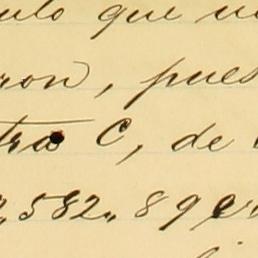 ulo que
ron, pues
tra C, de
,582,, 89